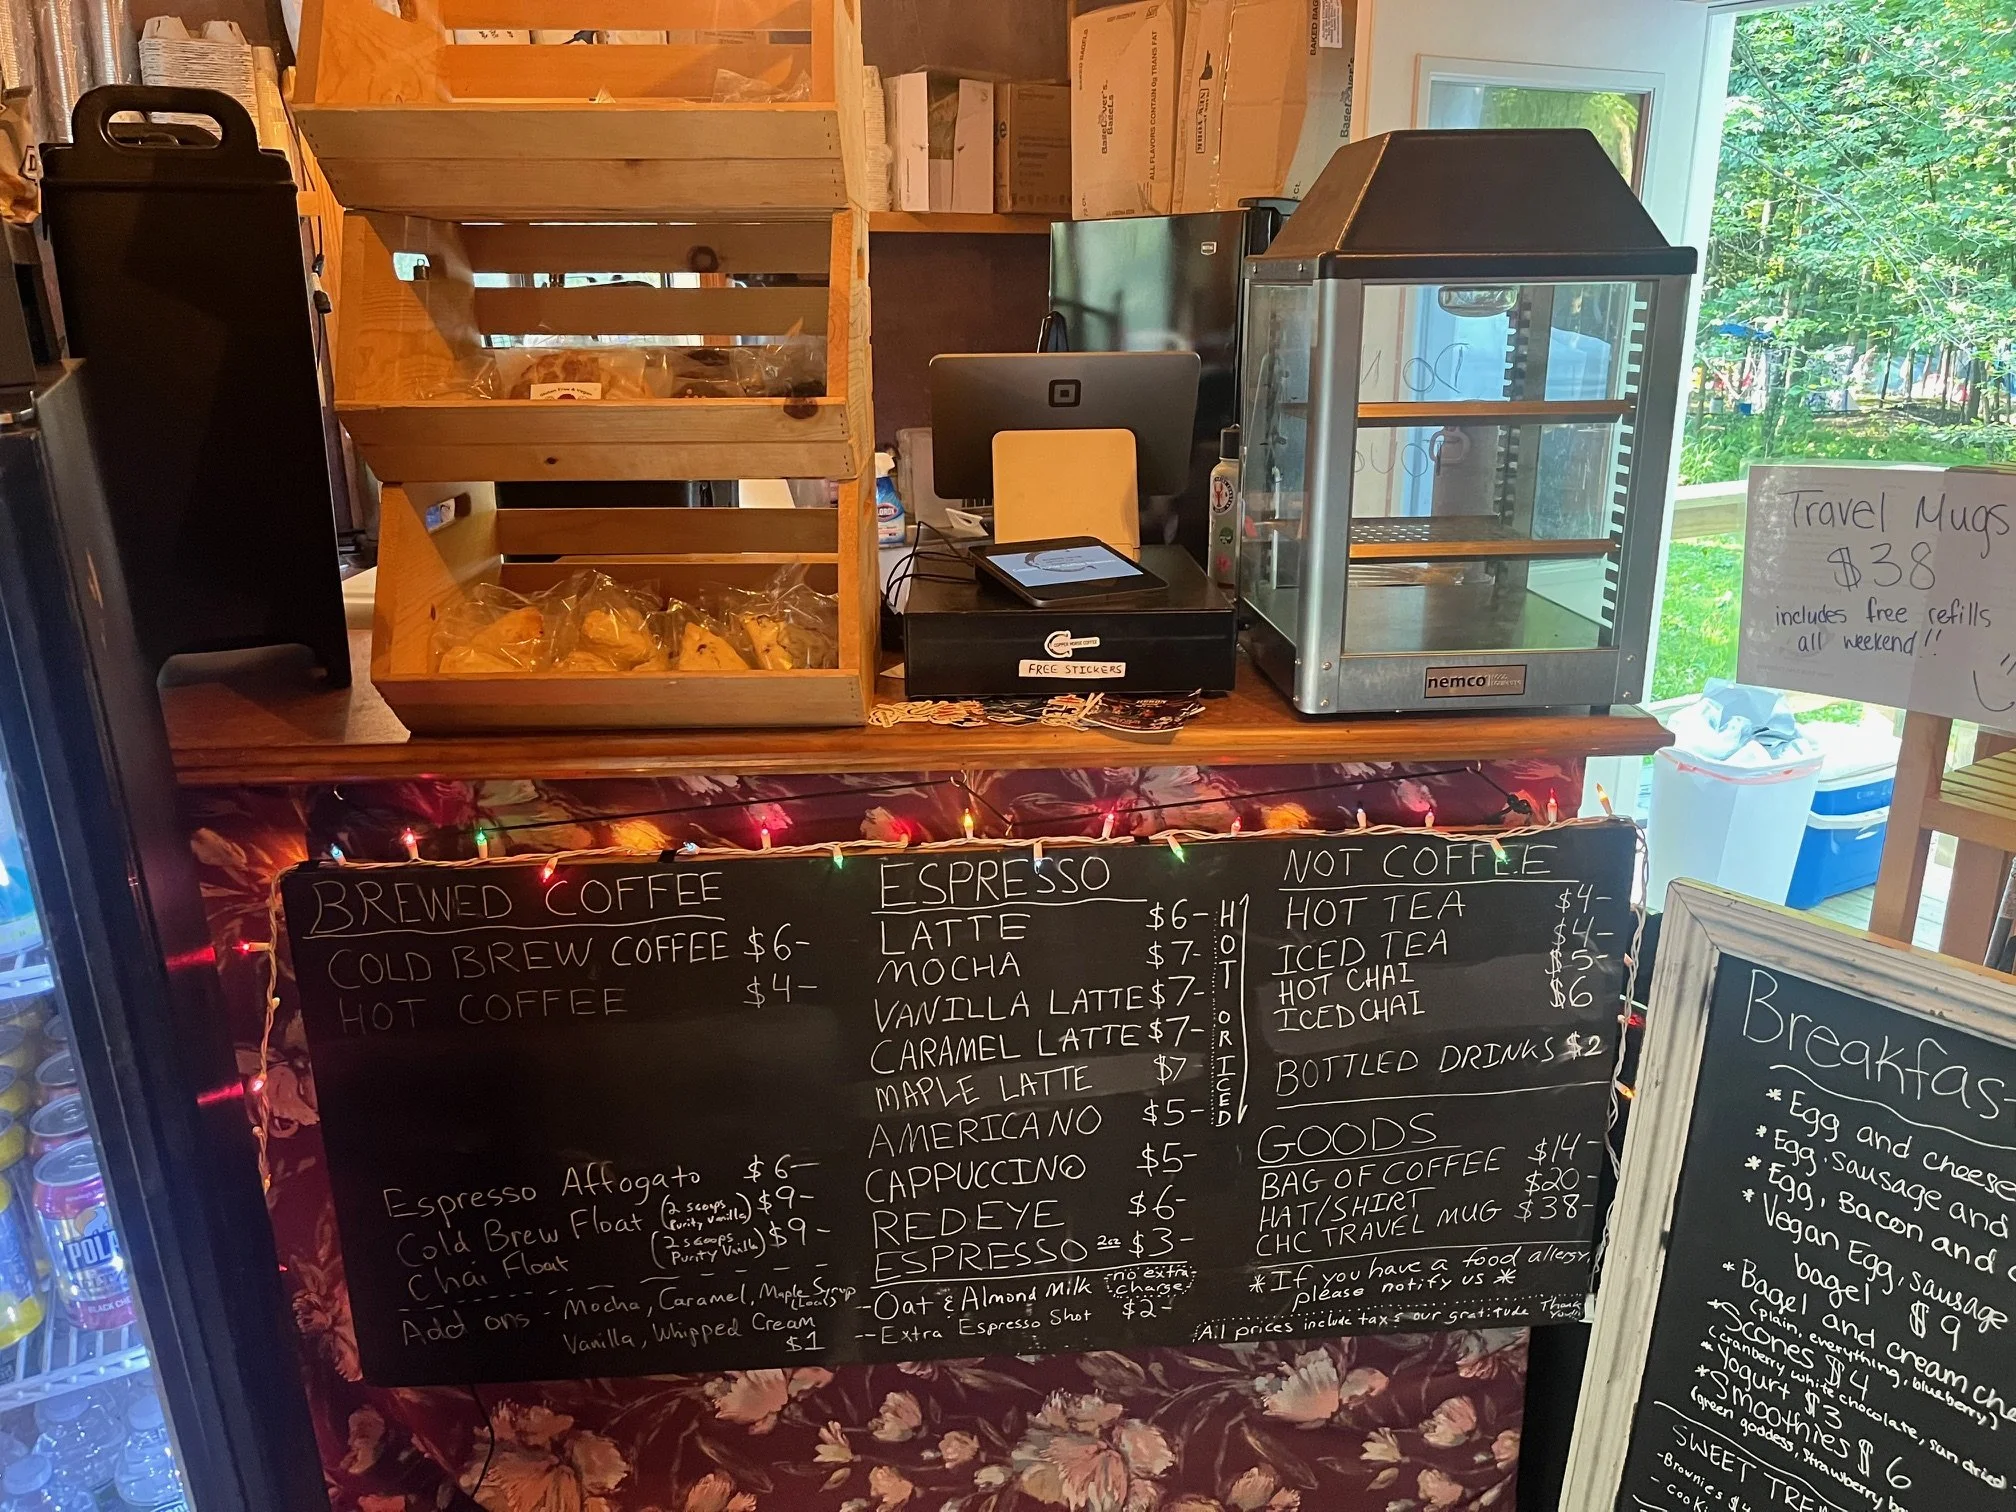 BagelLover's
BAGELS
ALL FLAVORS CONTAIN 0g TRANS FAT
NEW YORK
CLOROX
COPPER HORSE COFFEE
FREE STICKERS
nemco
Travel Mugs
$38
includes free refills
all weekend!!
BREWED COFFEE
COLD BREW COFFEE $6-
HOT COFFEE $4-
Espresso Affogato $6-
Cold Brew Float (2 scoops Purity Vanilla) $9-
Chai Float (2 scoops Purity Vanilla) $9-
Add ons - Mocha, Caramel, Maple Syrup (Local)
Vanilla, Whipped Cream
$1
ESPRESSO
LATTE $6-
MOCHA $7-
VANILLA LATTE $7-
CARAMEL LATTE $7-
MAPLE LATTE $7
AMERICANO $5-
CAPPUCCINO $5-
REDEYE $6-
ESPRESSO 2oz $3-
HOT OR ICED
-Oat & Almond Milk no extra charge
--Extra Espresso Shot $2-
NOT COFFEE
HOT TEA $4-
ICED TEA $4-
HOT CHAI $5-
ICED CHAI $6
BOTTLED DRINKS $2
GOODS
BAG OF COFFEE $14-
HAT/SHIRT $20-
CHC TRAVEL MUG $38-
*If you have a food allergy,
please notify us*
All prices include tax & our gratitude Thank You!!
Breakfas
*Egg and cheese
*Egg, sausage and
*Egg, Bacon and
*Vegan Egg, sausage
bagel $9
*Bagel and cream ch
(plain, everything, blueberry)
*Scones $4
(cranberry white chocolate, sun dried
*Yogurt $3
*Smoothies $6
(green goddess, strawberry
SWEET TREA
-Brownies $4
-cooki
POLA
BLACK CHE